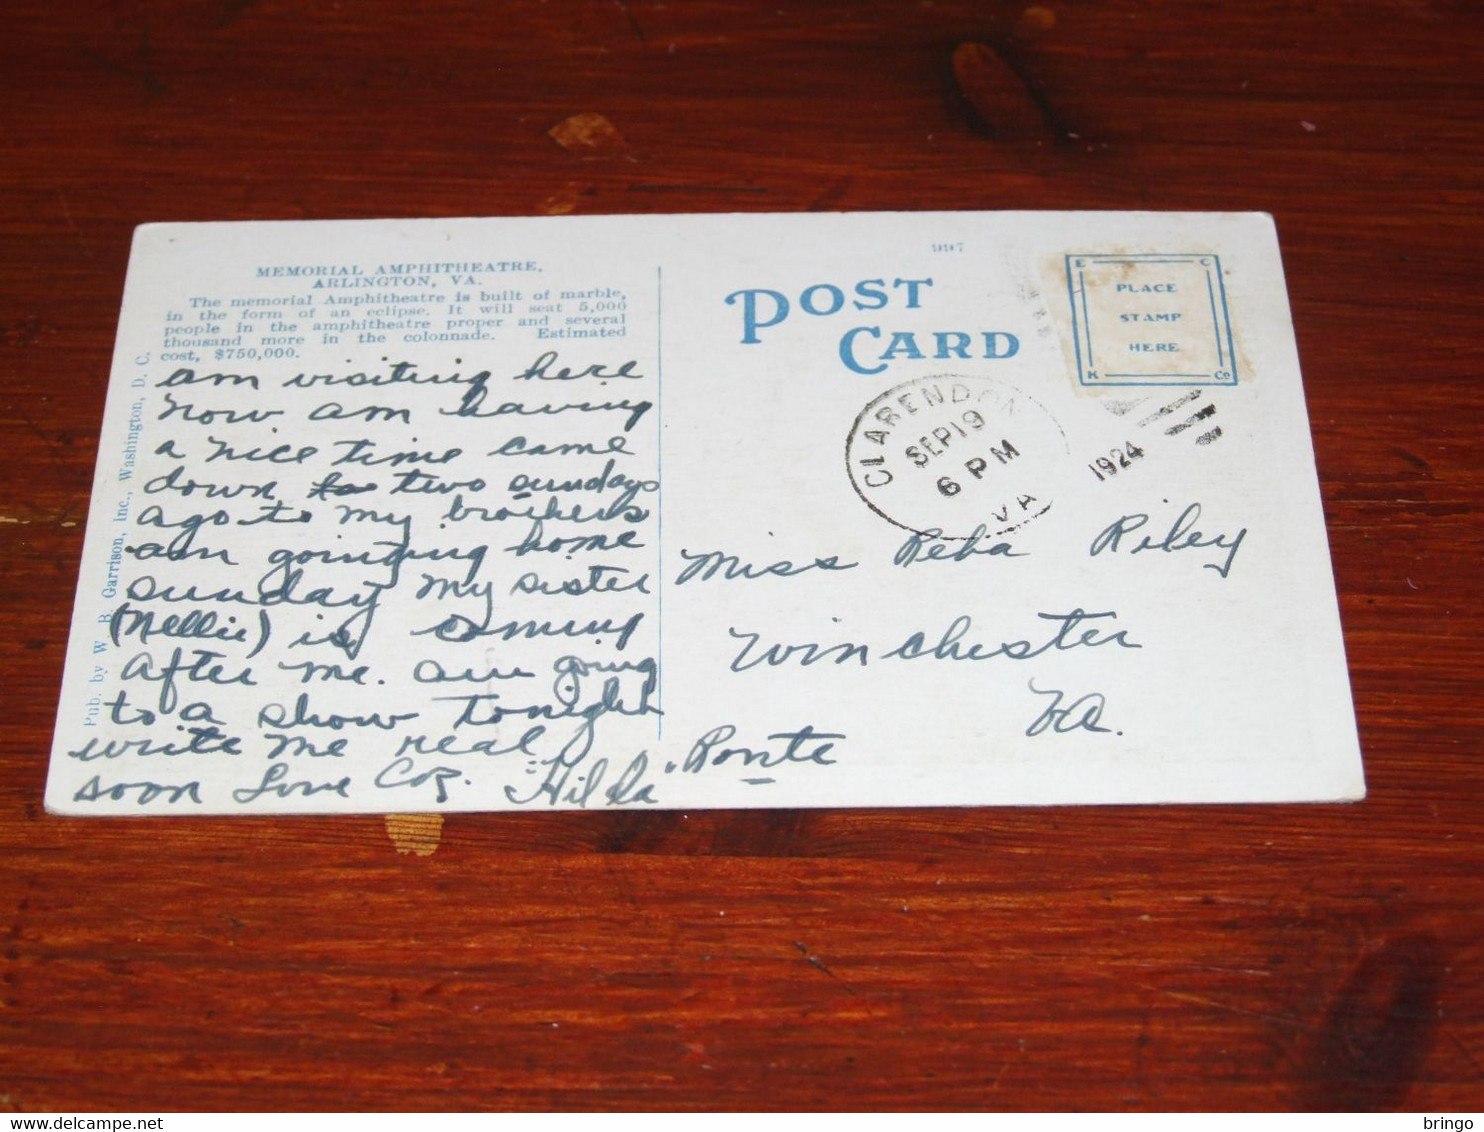 MEMORIAL AMPHITHEATRE,
ARLINGTON, VA.
The memorial Amphitheatre is built of marble,
in the form of an eclipse. It will seat 5,000
people in the amphitheatre proper and several
thousand more in the colonnade. Estimated
cost, $750,000.
am visiting here
now. am having
a nice time came
down two sundays
ago to my brothers
am going home
sunday my sister
(Nellie) is coming
after me. am going
to a show tonight
write me real
soon Love Coz. "Hilda"
Pub. by W. B. Garrison, Inc., Washington, D. C.
997
POST
CARD
E C
PLACE
STAMP
HERE
K Co
CLARENDON
SEP 19
6 PM
VA
1924
Miss Reba Riley
Winchester
Va.
Route
delcampe.net
bringo